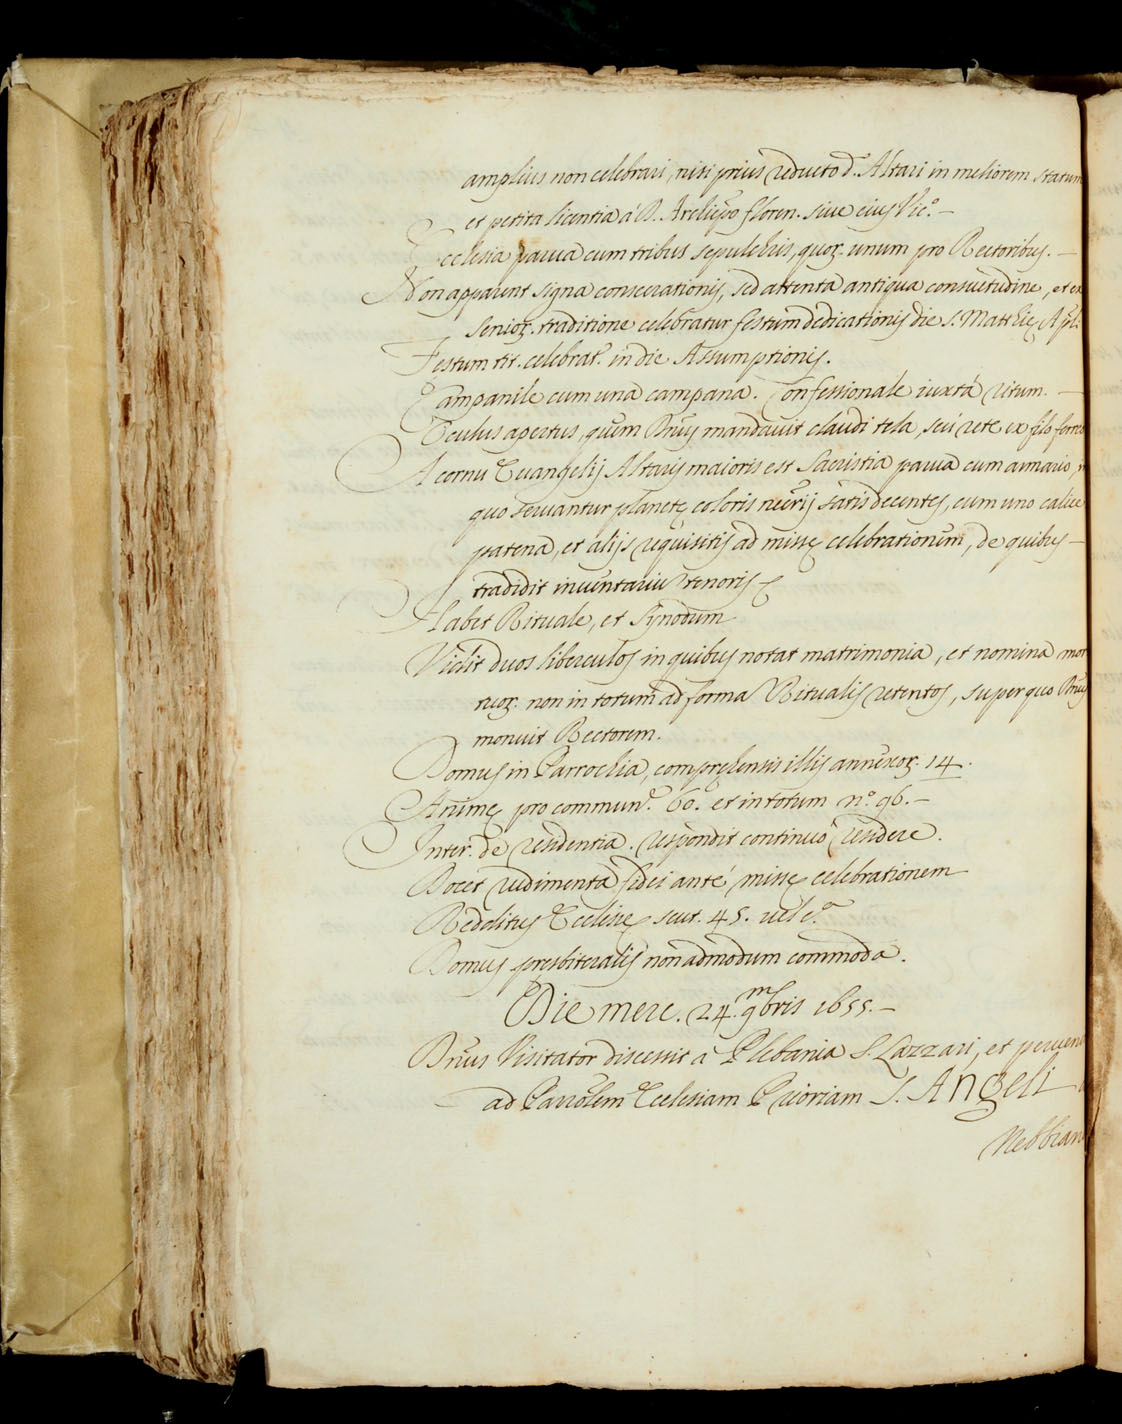 amplius non celebrari, nisi prius reducto d.º Altari in meliorem statum
et petita licentia á D. Archiepō floren. siue eius Vic.º –
Ecclesia parua cum tribus sepulchris, quoꝝ. unum pro Rectoribus. –
Non apparent signa consecrationis, sed attenta antiqua consuetudine, et ex
senioꝝ. traditione celebratur festum dedicationis die S. Matthię Apli.
Festum tit. celebrat. in die Assumptionis.
Campanile cum una campana. Confessionale iuxtá ritum. –
Oculus apertus, quem Dnus mandauit claudi tela, seú rete ex filo ferreo
A cornu Euangelij Altaris maioris est Sacristia parua cum armario,
quo seruantur planetę coloris necrij satis decentes, cum uno calice
patena, et alijs requisitis ad missę celebrationem, de quibus –
tradidit inuentariū tenoris
Habet Rituale, et Synodum
Vidit duos liberculos in quibus notat matrimonia, et nomina mor
tuoꝝ. non in totum ad formā Ritualis retentos, super quo Dnus
monuit Rectorem.
Domus in Parrochia, comprehensis illis annexoꝝ. 14.
Animę pro commun.e 60. et in totum nº. 96. –
Inter. de residentia. respondit continuó residere.
Docet rudimenta fidei anté missę celebrationem
Redditus Ecclesię scut. 45. uel c.ª
Domus pręsbiteralis non admodum commoda.
Die merc. 24. 9mbris 1655. –
Dnus Visitator discessit á Plebania S. Lazzari, et peruen
ad Parrõlem Ecclesiam Prioriam S. Angeli
Nebbian